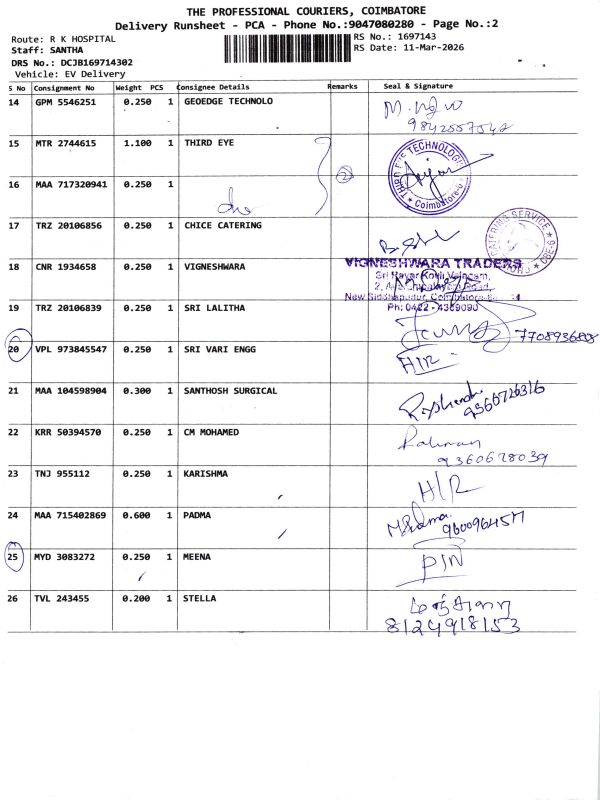 THE PROFESSIONAL COURIERS, COIMBATORE
Delivery Runsheet - PCA - Phone No.:9047080280 - Page No.:2
Route: R K HOSPITAL
RS No.: 1697143
Staff: SANTHA
RS Date: 11-Mar-2026
DRS No.: DCJB169714302
Vehicle: EV Delivery
S No Consignment No Weight PCS Consignee Details Remarks Seal & Signature
14 GPM 5546251 0.250 1 GEOEDGE TECHNOLO
15 MTR 2744615 1.100 1 THIRD EYE
2
THIRD EYE TECHNOLOGIES
Coimbatore
16 MAA 717320941 0.250 1
17 TRZ 20106856 0.250 1 CHICE CATERING
CATERING SERVICE
CBE-6
18 CNR 1934658 0.250 1 VIGNESHWARA
VIGNESHWARA TRADERS
Ph: 0422 - 4369090
19 TRZ 20106839 0.250 1 SRI LALITHA
7708936808
20 VPL 973845547 0.250 1 SRI VARI ENGG H/R
21 MAA 104598904 0.300 1 SANTHOSH SURGICAL
9366726316
22 KRR 50394570 0.250 1 CM MOHAMED Rahman
9360678039
23 TNJ 955112 0.250 1 KARISHMA H/R
24 MAA 715402869 0.600 1 PADMA
9600964577
25 MYD 3083272 0.250 1 MEENA P/N
26 TVL 243455 0.200 1 STELLA
8124918153